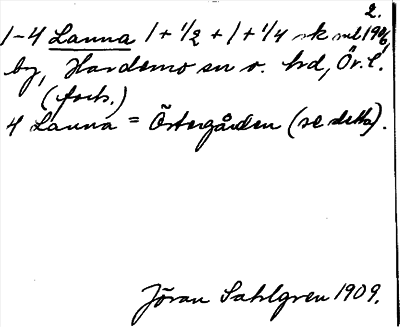 2.
1-4 Lanna 1 + 1/2 + 1 + 1/4 sk
by, Hardemo sn o. hd, Ör. l.
(forts.)
4 Lanna = Östergården (se detta).
Jöran Sahlgren 1909.